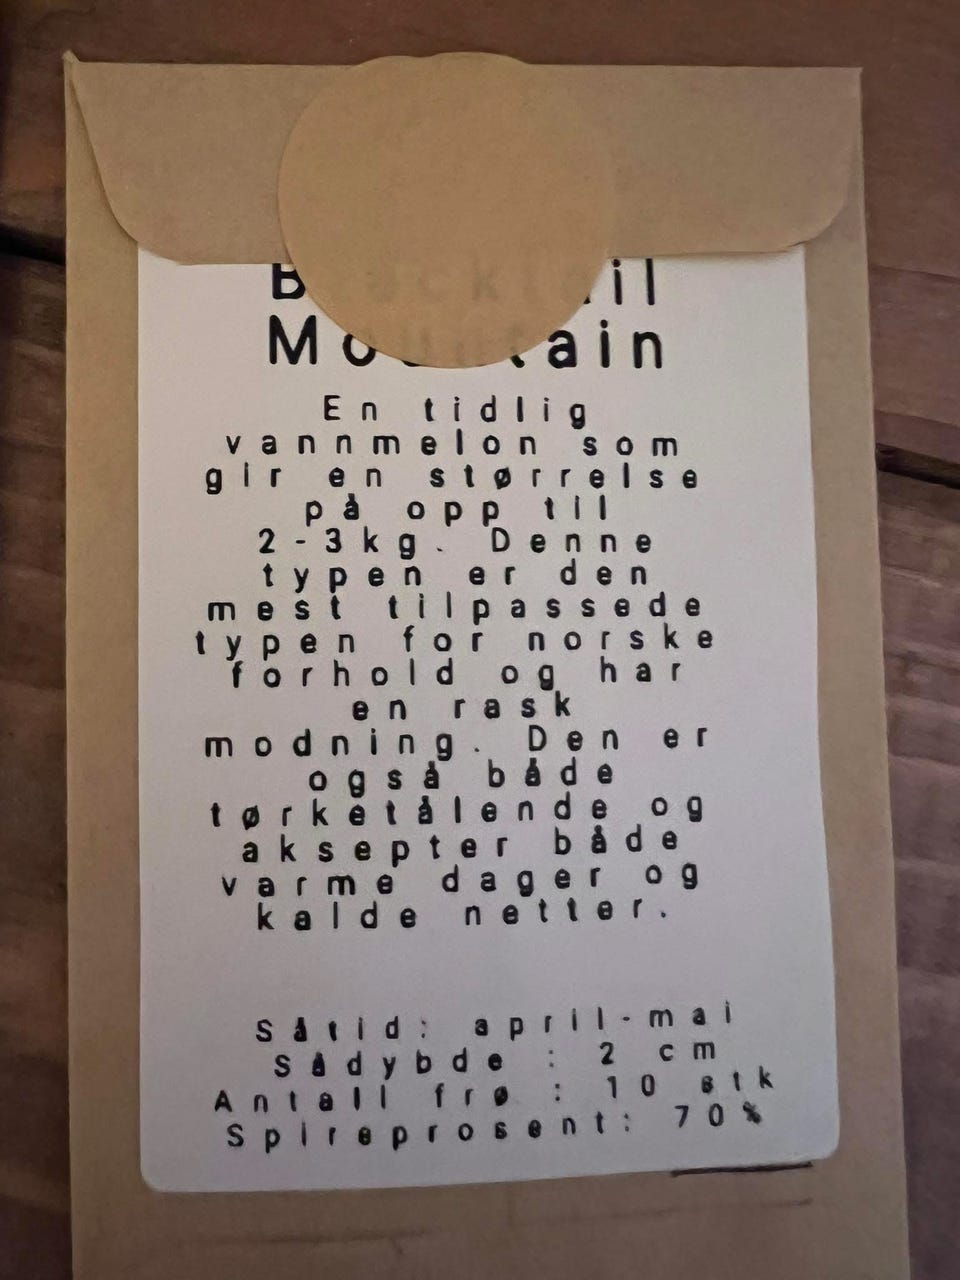 Blacktail
Mountain
En tidlig
vannmelon som
gir en størrelse
på opp til
2-3kg. Denne
typen er den
mest tilpassede
typen for norske
forhold og har
en rask
modning. Den er
også både
tørketålende og
aksepter både
varme dager og
kalde netter.
Såtid: april-mai
Sådybde : 2 cm
Antall frø : 10 stk
Spireprosent: 70%